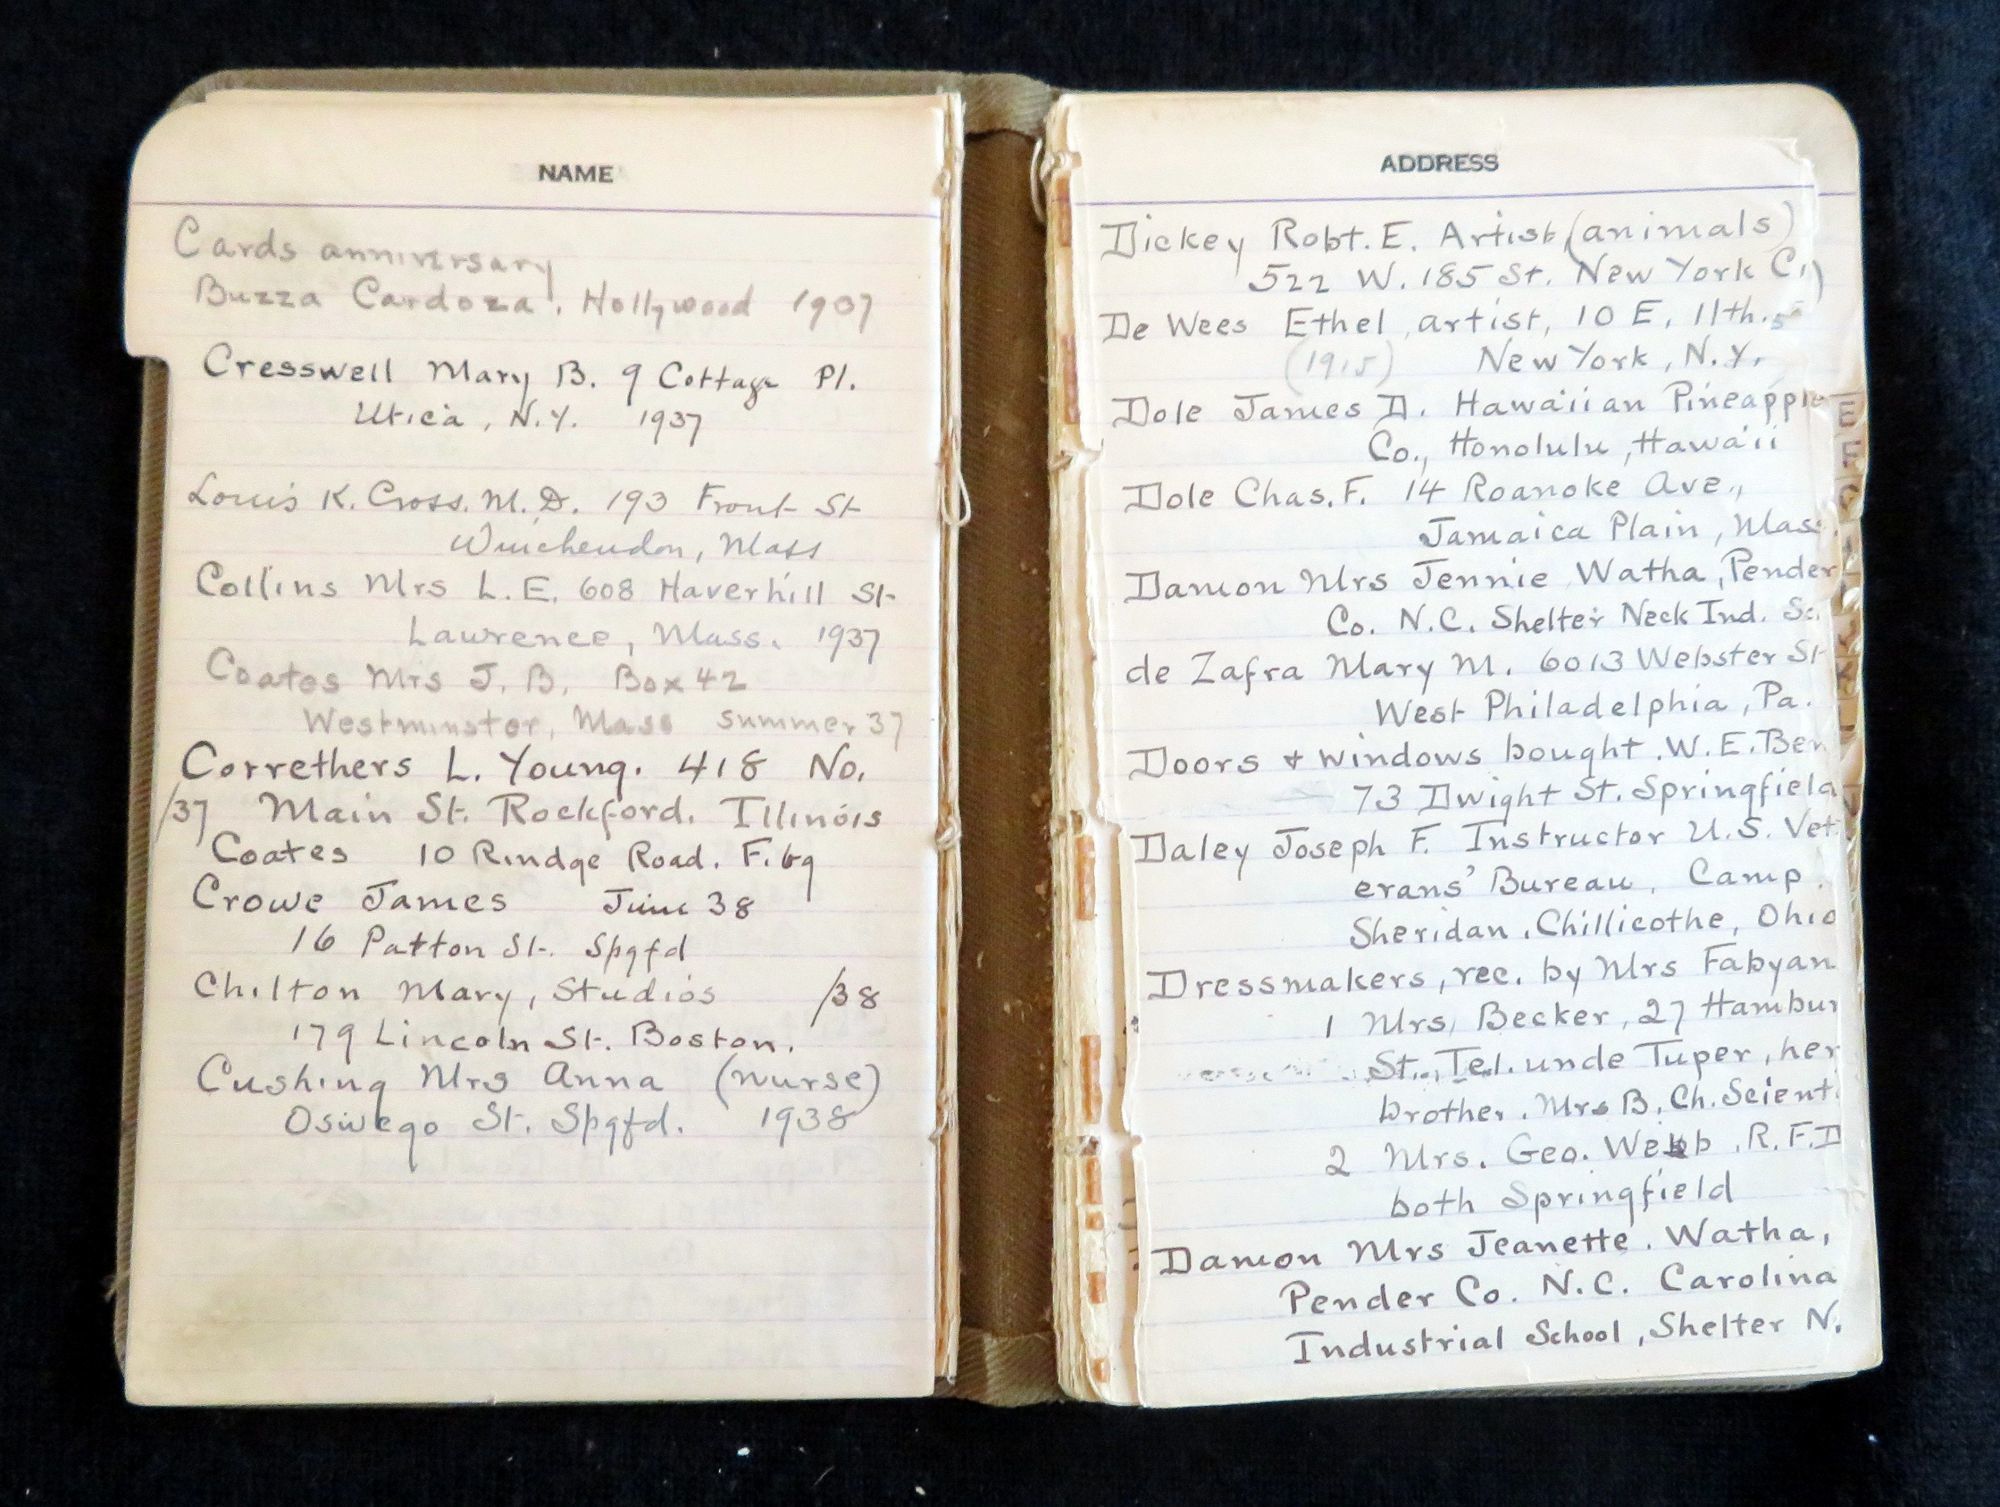 NAME
Cards anniversary
Buzza Cardoza, Hollywood 1937
Cresswell Mary B. 9 Cottage Pl.
Utica, N.Y. 1937
Louis K. Cross. M.D. 193 Front St
Winchendon, Mass
Collins Mrs L.E. 608 Haverhill St
Lawrence, Mass. 1937
Coates Mrs J.B. Box 42
Westminster, Mass summer 37
Correthers L. Young. 418 No.
/37 Main St. Rockford. Illinois
Coates 10 Rindge Road. F.
Crowe James June 38
16 Patton St. Spgfd
Chilton Mary, Studios /38
179 Lincoln St. Boston.
Cushing Mrs Anna (nurse)
Oswego St. Spgfd. 1938
ADDRESS
Dickey Robt. E. Artist (animals)
522 W. 185 St. New York
De Wees Ethel, artist, 10 E. 11th.
(1915) New York, N.Y.
Dole James D. Hawaiian Pineapple
Co., Honolulu, Hawaii
Dole Chas. F. 14 Roanoke Ave.,
Jamaica Plain, Mass.
Damon Mrs Jennie Watha, Pender
Co. N.C. Shelter Neck Ind. Sc
de Zafra Mary M. 6013 Webster St
West Philadelphia, Pa.
Doors & windows bought. W.E. Ben
73 Dwight St. Springfield
Daley Joseph F. Instructor U.S. Vet
erans' Bureau, Camp
Sheridan, Chillicothe, Ohio
Dressmakers, rec. by Mrs Fabyan
1 Mrs, Becker, 27 Hambur
St. Tel. unde Tuper, her
brother. Mrs B. Ch. Scient.
2 Mrs. Geo. Webb, R.F.D
both Springfield
Damon Mrs Jeanette. Watha,
Pender Co. N.C. Carolina
Industrial School, Shelter N.
E
F
G